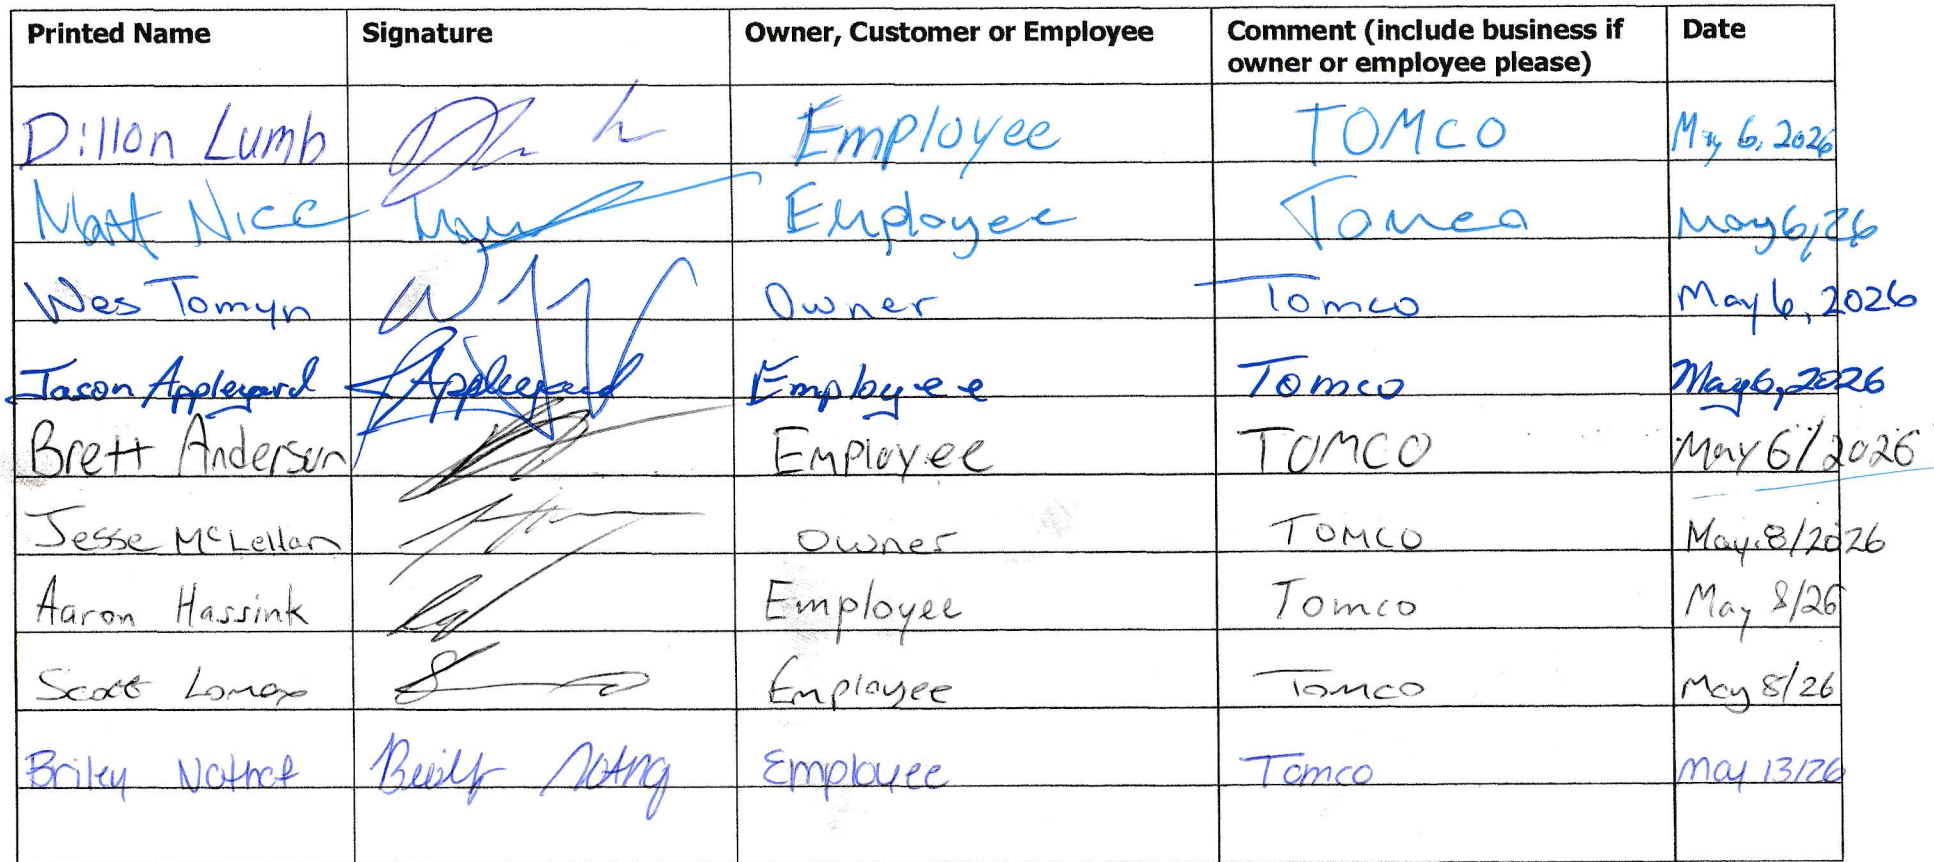 Printed Name Signature Owner, Customer or Employee Comment (include business if owner or employee please) Date
Dillon Lumb Employee TOMCO May 6, 2026
Matt Nice Employee Tomco May 6, 26
Wes Tomyn Owner Tomco May 6, 2026
Jason Appleyard J Appleyard Employee Tomco May 6, 2026
Brett Anderson Employee TOMCO May 6/2026
Jesse McLellan Owner TOMCO May. 8/2026
Aaron Hassink Employee Tomco May 8/26
Scott Lomax Employee Tomco May 8/26
Briley Employee Tomco May 13/26